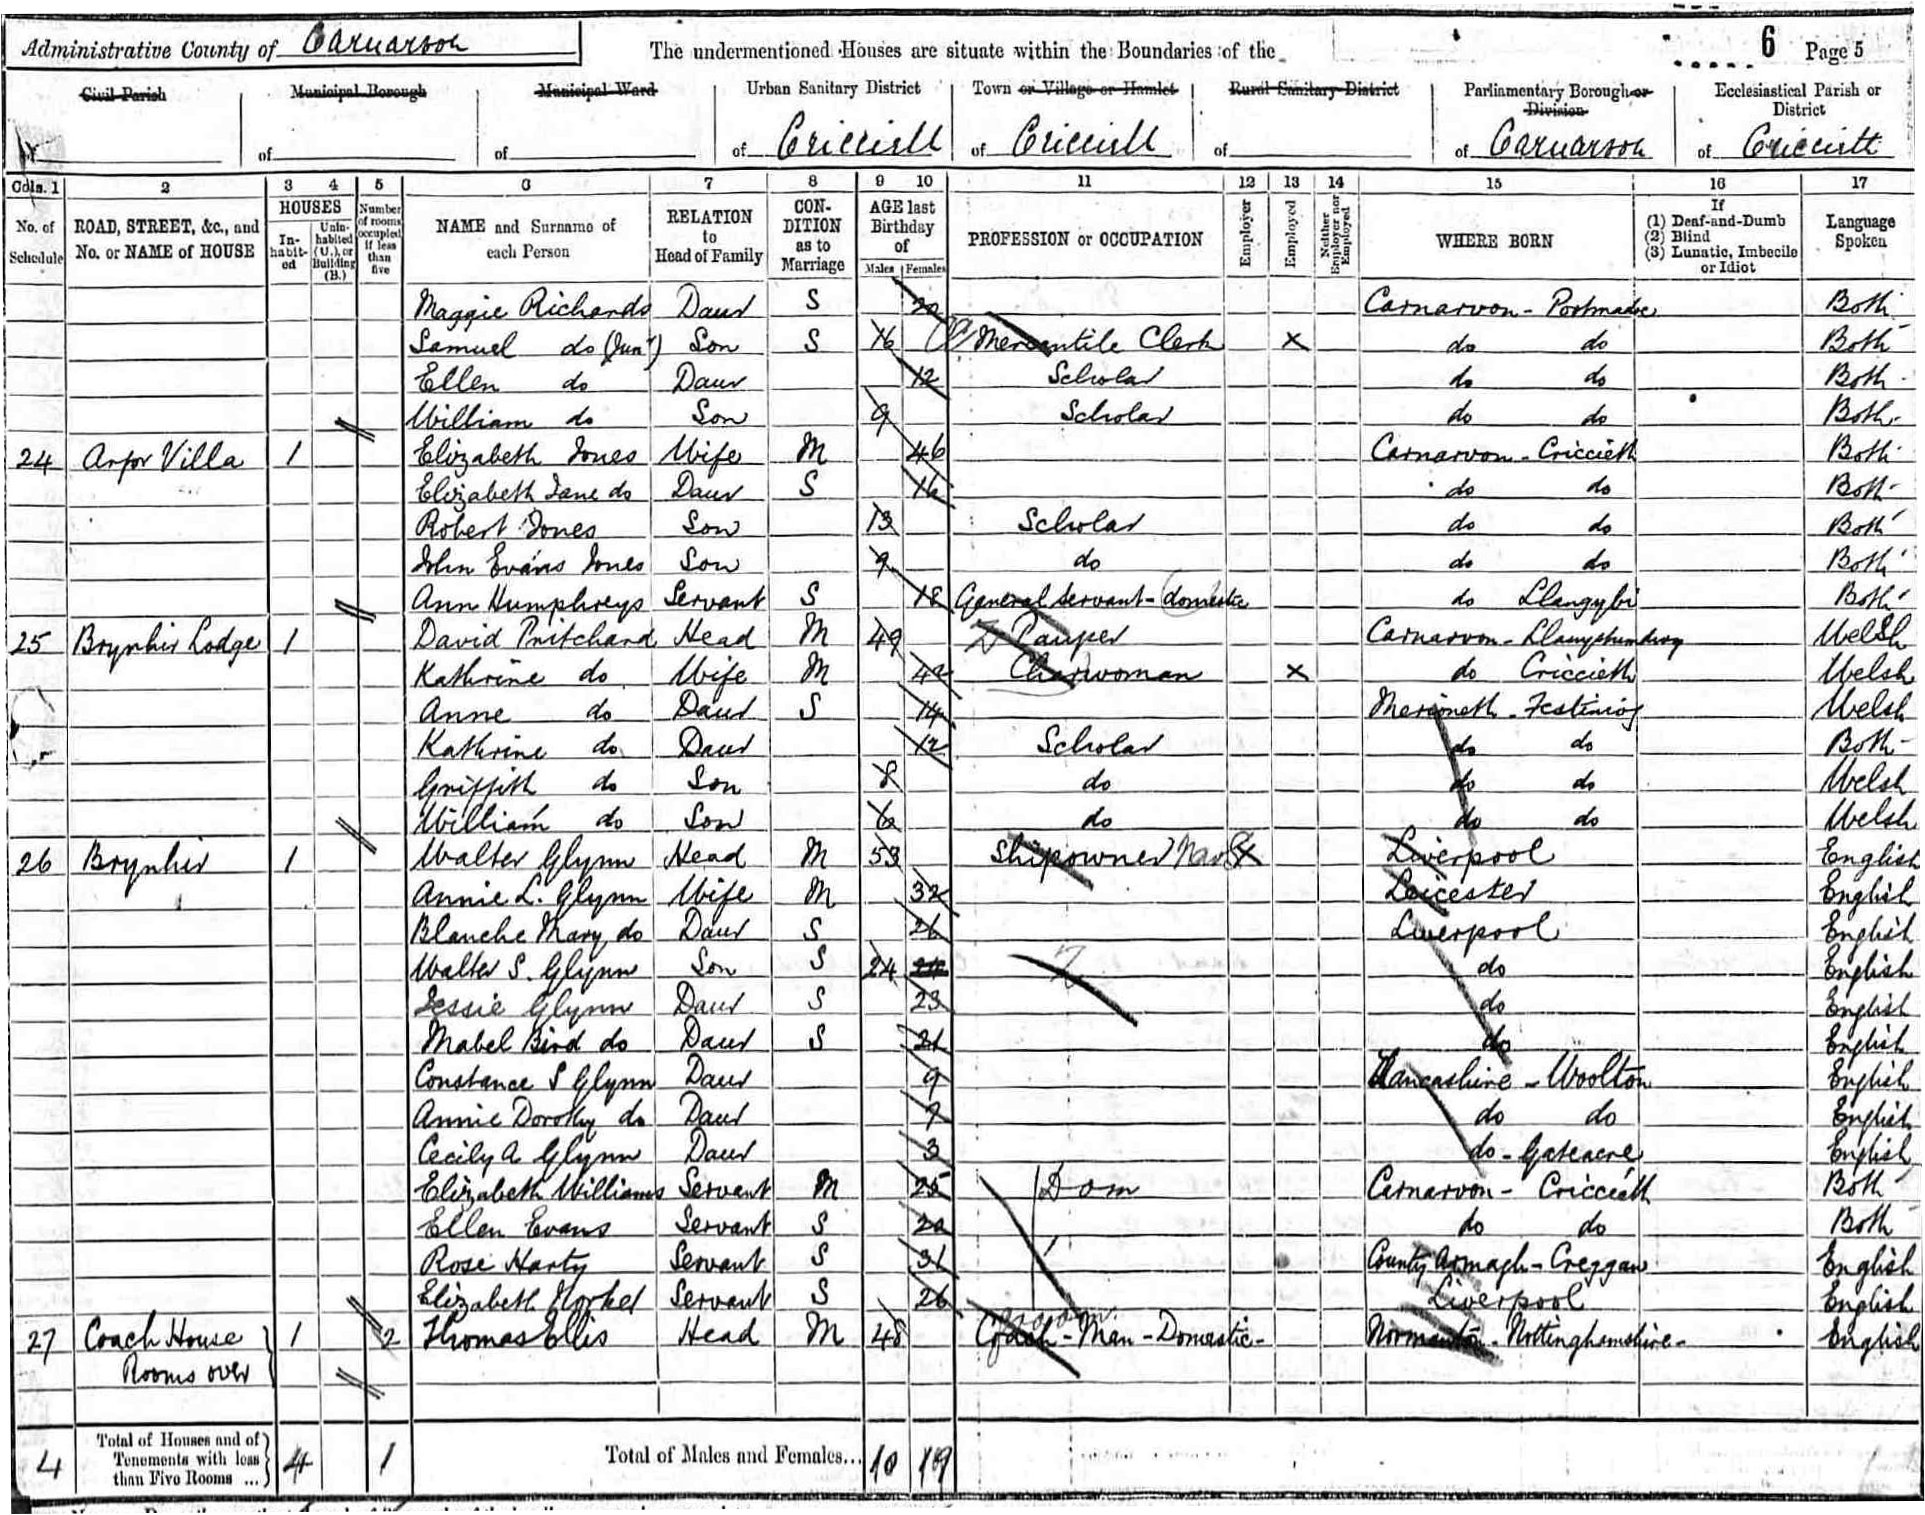 Administrative County of Carnarvon The undermentioned Houses are situate within the Boundaries of the 6 Page 5
Civil Parish Municipal Borough Municipal Ward Urban Sanitary District Town or Village or Hamlet Rural Sanitary District Parliamentary Borough or Division Ecclesiastical Parish or District
of of of Criccieth of Criccieth of of Carnarvon of Criccieth
Cols. 1 2 3 4 5 6 7 8 9 10 11 12 13 14 15 16 17
No. of Schedule ROAD, STREET, &c., and No. or NAME of HOUSE HOUSES In-habit-ed Unin-habited (U.), or Building (B.) Number of rooms occupied if less than five NAME and Surname of each Person RELATION to Head of Family CON-DITION as to Marriage AGE last Birthday of Males Females PROFESSION or OCCUPATION Employer Employed Neither Employer nor Employed WHERE BORN If (1) Deaf-and-Dumb (2) Blind (3) Lunatic, Imbecile or Idiot Language Spoken
Maggie Richards Daur S 20 Carnarvon - Portmadoc Both
Samuel do (Junr) Son S 16 Mercantile Clerk X do do Both
Ellen do Daur 12 Scholar do do Both
William do Son 9 Scholar do do Both
24 Arfor Villa 1 Elizabeth Jones Wife M 46 Carnarvon - Criccieth Both
Elizabeth Jane do Daur S 16 do do Both
Robert Jones Son 13 Scholar do do Both
John Evans Jones Son 9 do do do Both
Ann Humphreys Servant S 18 General Servant - (domestic do Llangybi Both
25 Brynhir Lodge 1 David Pritchard Head M 49 Pauper Carnarvon - Llanystumdwy Welsh
Kathrine do Wife M 42 Charwoman X do Criccieth Welsh
Anne do Daur S 14 Merioneth - Festiniog Welsh
Kathrine do Daur 12 Scholar do do Both
Griffith do Son 8 do do do Welsh
William do Son 6 do do do Welsh
26 Brynhir 1 Walter Glynn Head M 53 Shipowner Nav S X Liverpool English
Annie L. Glynn Wife M 32 Leicester English
Blanche Mary do Daur S 26 Liverpool English
Walter S. Glynn Son S 24 24 do English
Jessie Glynn Daur S 23 do English
Mabel Bird do Daur S 21 do English
Constance S Glynn Daur 9 Lancashire - Woolton English
Annie Dorothy do Daur 7 do do English
Cecily A Glynn Daur 3 do - Gateacre English
Elizabeth Williams Servant M 25 Dom Carnarvon - Criccieth Both
Ellen Evans Servant S 20 do do Both
Rose Harty Servant S 31 County Armagh - Creggan English
Elizabeth Servant S 26 Liverpool English
27 Coach House 1 2 Thomas Ellis Head M 48 Groom Coach - Man - Domestic - Normanton - Nottinghamshire - English
Rooms over
4 Total of Houses and of Tenements with less than Five Rooms ... 4 1 Total of Males and Females... 10 19